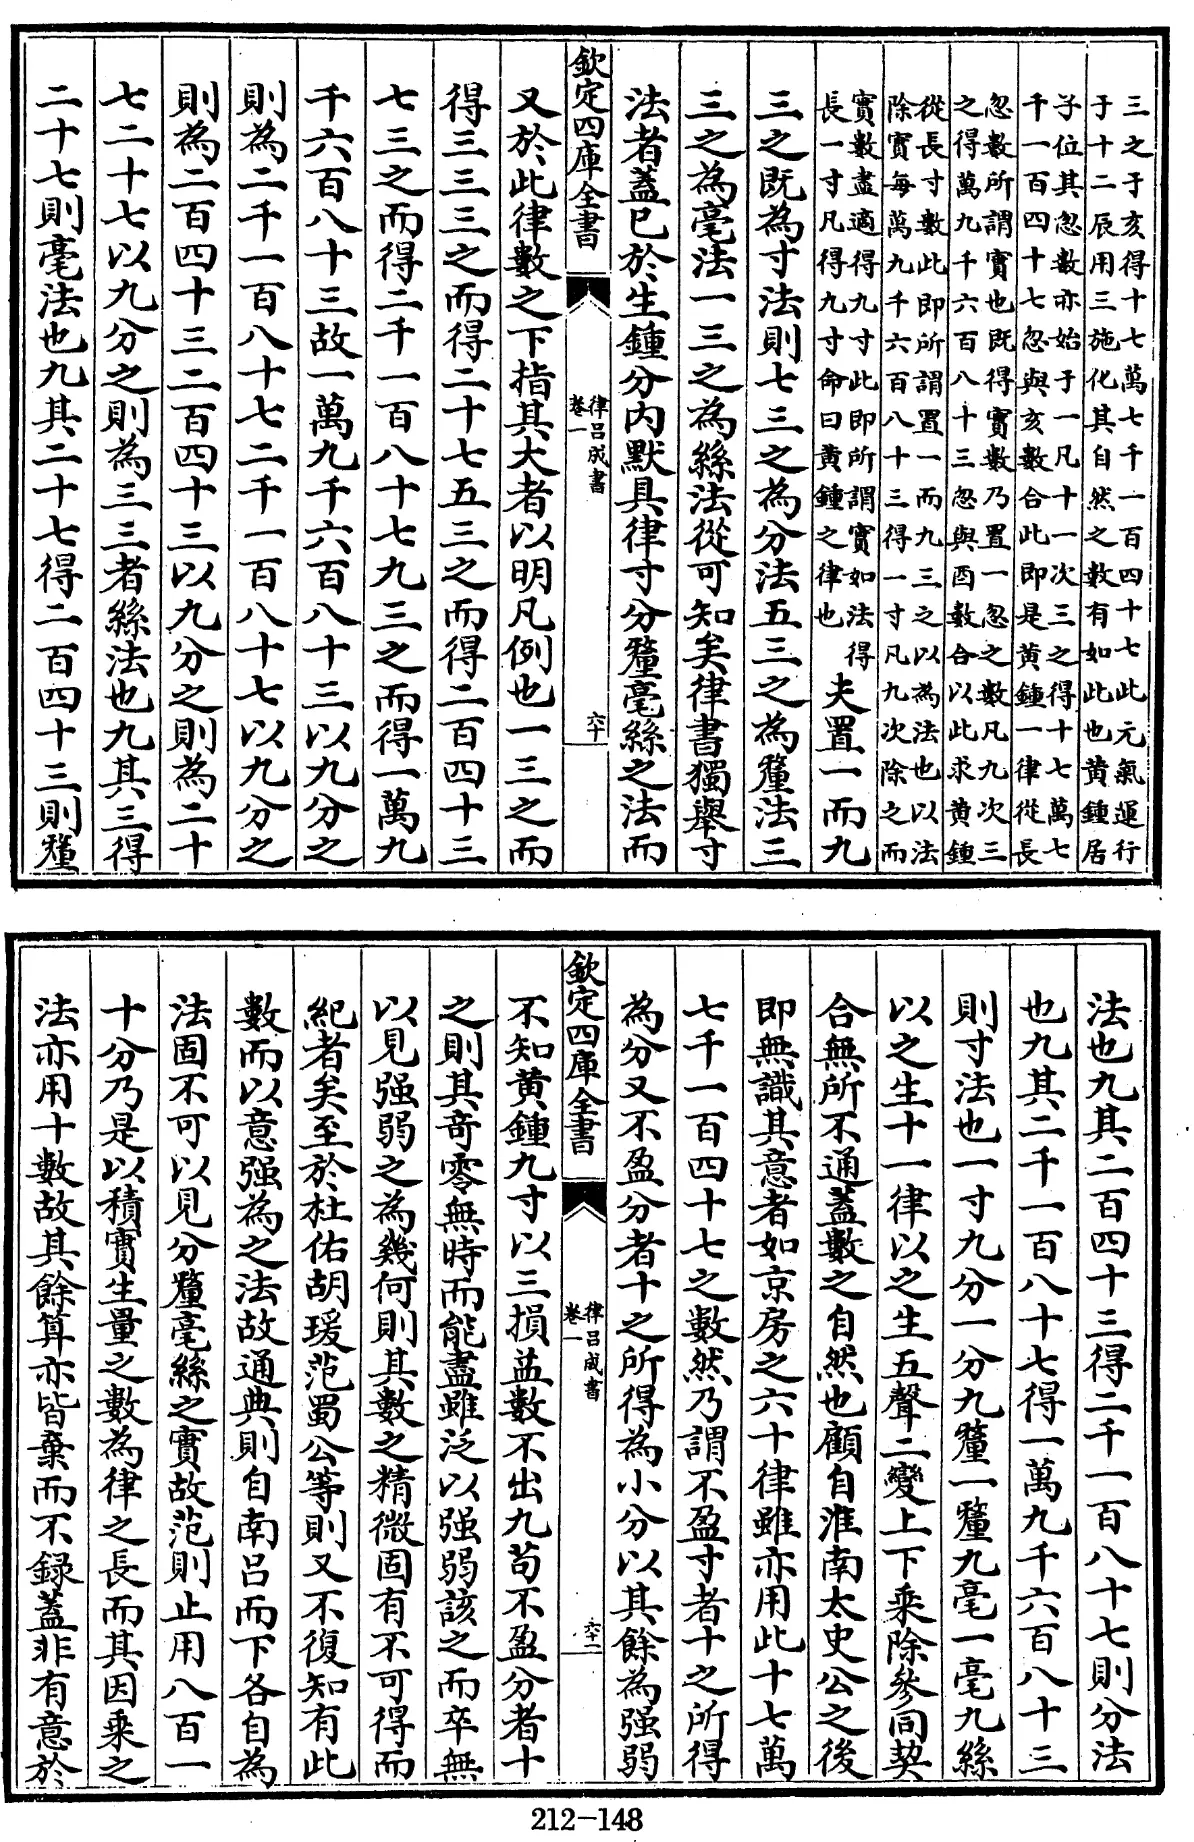 三之于亥得十七萬七千一百四十七此元氣運行
于十二辰用三施化其自然之數有如此也黄鍾居
子位其忽數亦始于一凡十一次三之得十七萬七
千一百四十七忽與亥數合此即是黄鍾一律從長
忽數所謂實也既得實數乃置一忽之數凡九次三
之得萬九千六百八十三忽與酉數合以此求黄鍾
從長寸數此即所謂置一而九三之以為法也以法
除實每萬九千六百八十三得一寸凡九次除之而
實數盡適得九寸此即所謂實如法得
長一寸凡得九寸命曰黄鍾之律也
夫置一而九
三之既為寸法則七三之為分法五三之為釐法三
三之為毫法一三之為絲法從可知矣律書獨舉寸
法者蓋已於生鍾分内默具律寸分釐毫絲之法而
欽定四庫全書
律呂成書
卷一
六十
又於此律數之下指其大者以明凡例也一三之而
得三三三之而得二十七五三之而得二百四十三
七三之而得二千一百八十七九三之而得一萬九
千六百八十三故一萬九千六百八十三以九分之
則為二千一百八十七二千一百八十七以九分之
則為二百四十三二百四十三以九分之則為二十
七二十七以九分之則為三三者絲法也九其三得
二十七則毫法也九其二十七得二百四十三則釐
法也九其二百四十三得二千一百八十七則分法
也九其二千一百八十七得一萬九千六百八十三
則寸法也一寸九分一分九釐一釐九毫一毫九絲
以之生十一律以之生五聲二變上下乘除參同契
合無所不通蓋數之自然也顧自淮南太史公之後
即無識其意者如京房之六十律雖亦用此十七萬
七千一百四十七之數然乃謂不盈寸者十之所得
為分又不盈分者十之所得為小分以其餘為强弱
欽定四庫全書
律呂成書
卷一
六十一
不知黄鍾九寸以三損益數不出九苟不盈分者十
之則其奇零無時而能盡雖泛以强弱該之而卒無
以見强弱之為幾何則其數之精微固有不可得而
紀者矣至於杜佑胡瑗范蜀公等則又不復知有此
數而以意强為之法故通典則自南呂而下各自為
法固不可以見分釐毫絲之實故范則止用八百一
十分乃是以積實生量之數為律之長而其因乘之
法亦用十數故其餘算亦皆棄而不録蓋非有意於
212-148